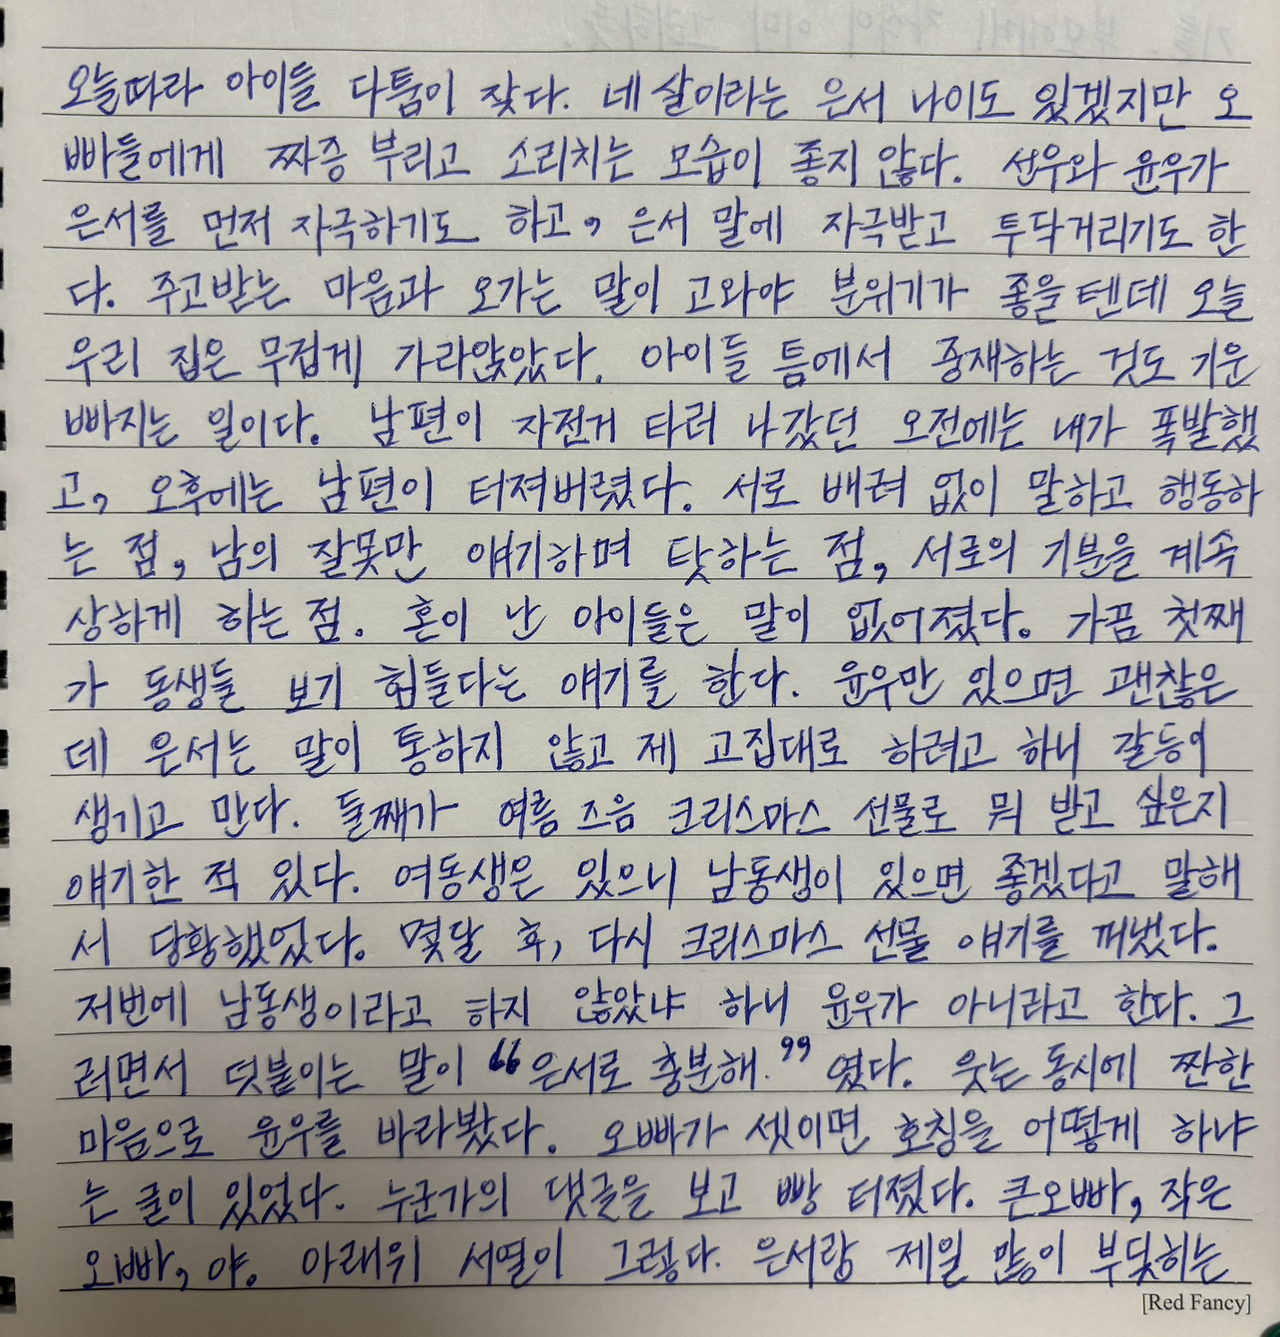 오늘따라 아이들 다툼이 잦다. 네 살이라는 은서 나이도 있겠지만 오
빠들에게 짜증 부리고 소리치는 모습이 좋지 않다. 선우와 윤우가
은서를 먼저 자극하기도 하고, 은서 말에 자극받고 투닥거리기도 한
다. 주고받는 마음과 오가는 말이 고와야 분위기가 좋을텐데 오늘
우리 집은 무겁게 가라앉았다. 아이들 틈에서 중재하는 것도 기운
빠지는 일이다. 남편이 자전거 타러 나갔던 오전에는 내가 폭발했
고, 오후에는 남편이 터져버렸다. 서로 배려 없이 말하고 행동하
는 점, 남의 잘못만 얘기하며 탓하는 점, 서로의 기분을 계속
상하게 하는 점. 혼이 난 아이들은 말이 없어졌다. 가끔 첫째
가 동생들 보기 힘들다는 얘기를 한다. 윤우만 있으면 괜찮은
데 은서는 말이 통하지 않고 제 고집대로 하려고 하니 갈등이
생기고 만다. 둘째가 여름 즈음 크리스마스 선물로 뭐 받고 싶은지
얘기한 적 있다. 여동생은 있으니 남동생이 있으면 좋겠다고 말해
서 당황했었다. 몇달 후, 다시 크리스마스 선물 얘기를 꺼냈다.
저번에 남동생이라고 하지 않았냐 하니 윤우가 아니라고 한다. 그
러면서 덧붙이는 말이 "은서로 충분해." 였다. 웃는 동시에 짠한
마음으로 윤우를 바라봤다. 오빠가 셋이면 호칭을 어떻게 하냐
는 글이 있었다. 누군가의 댓글을 보고 빵 터졌다. 큰오빠, 작은
오빠, 야. 아래위 서열이 그렇다. 은서랑 제일 많이 부딪히는
[Red Fancy]